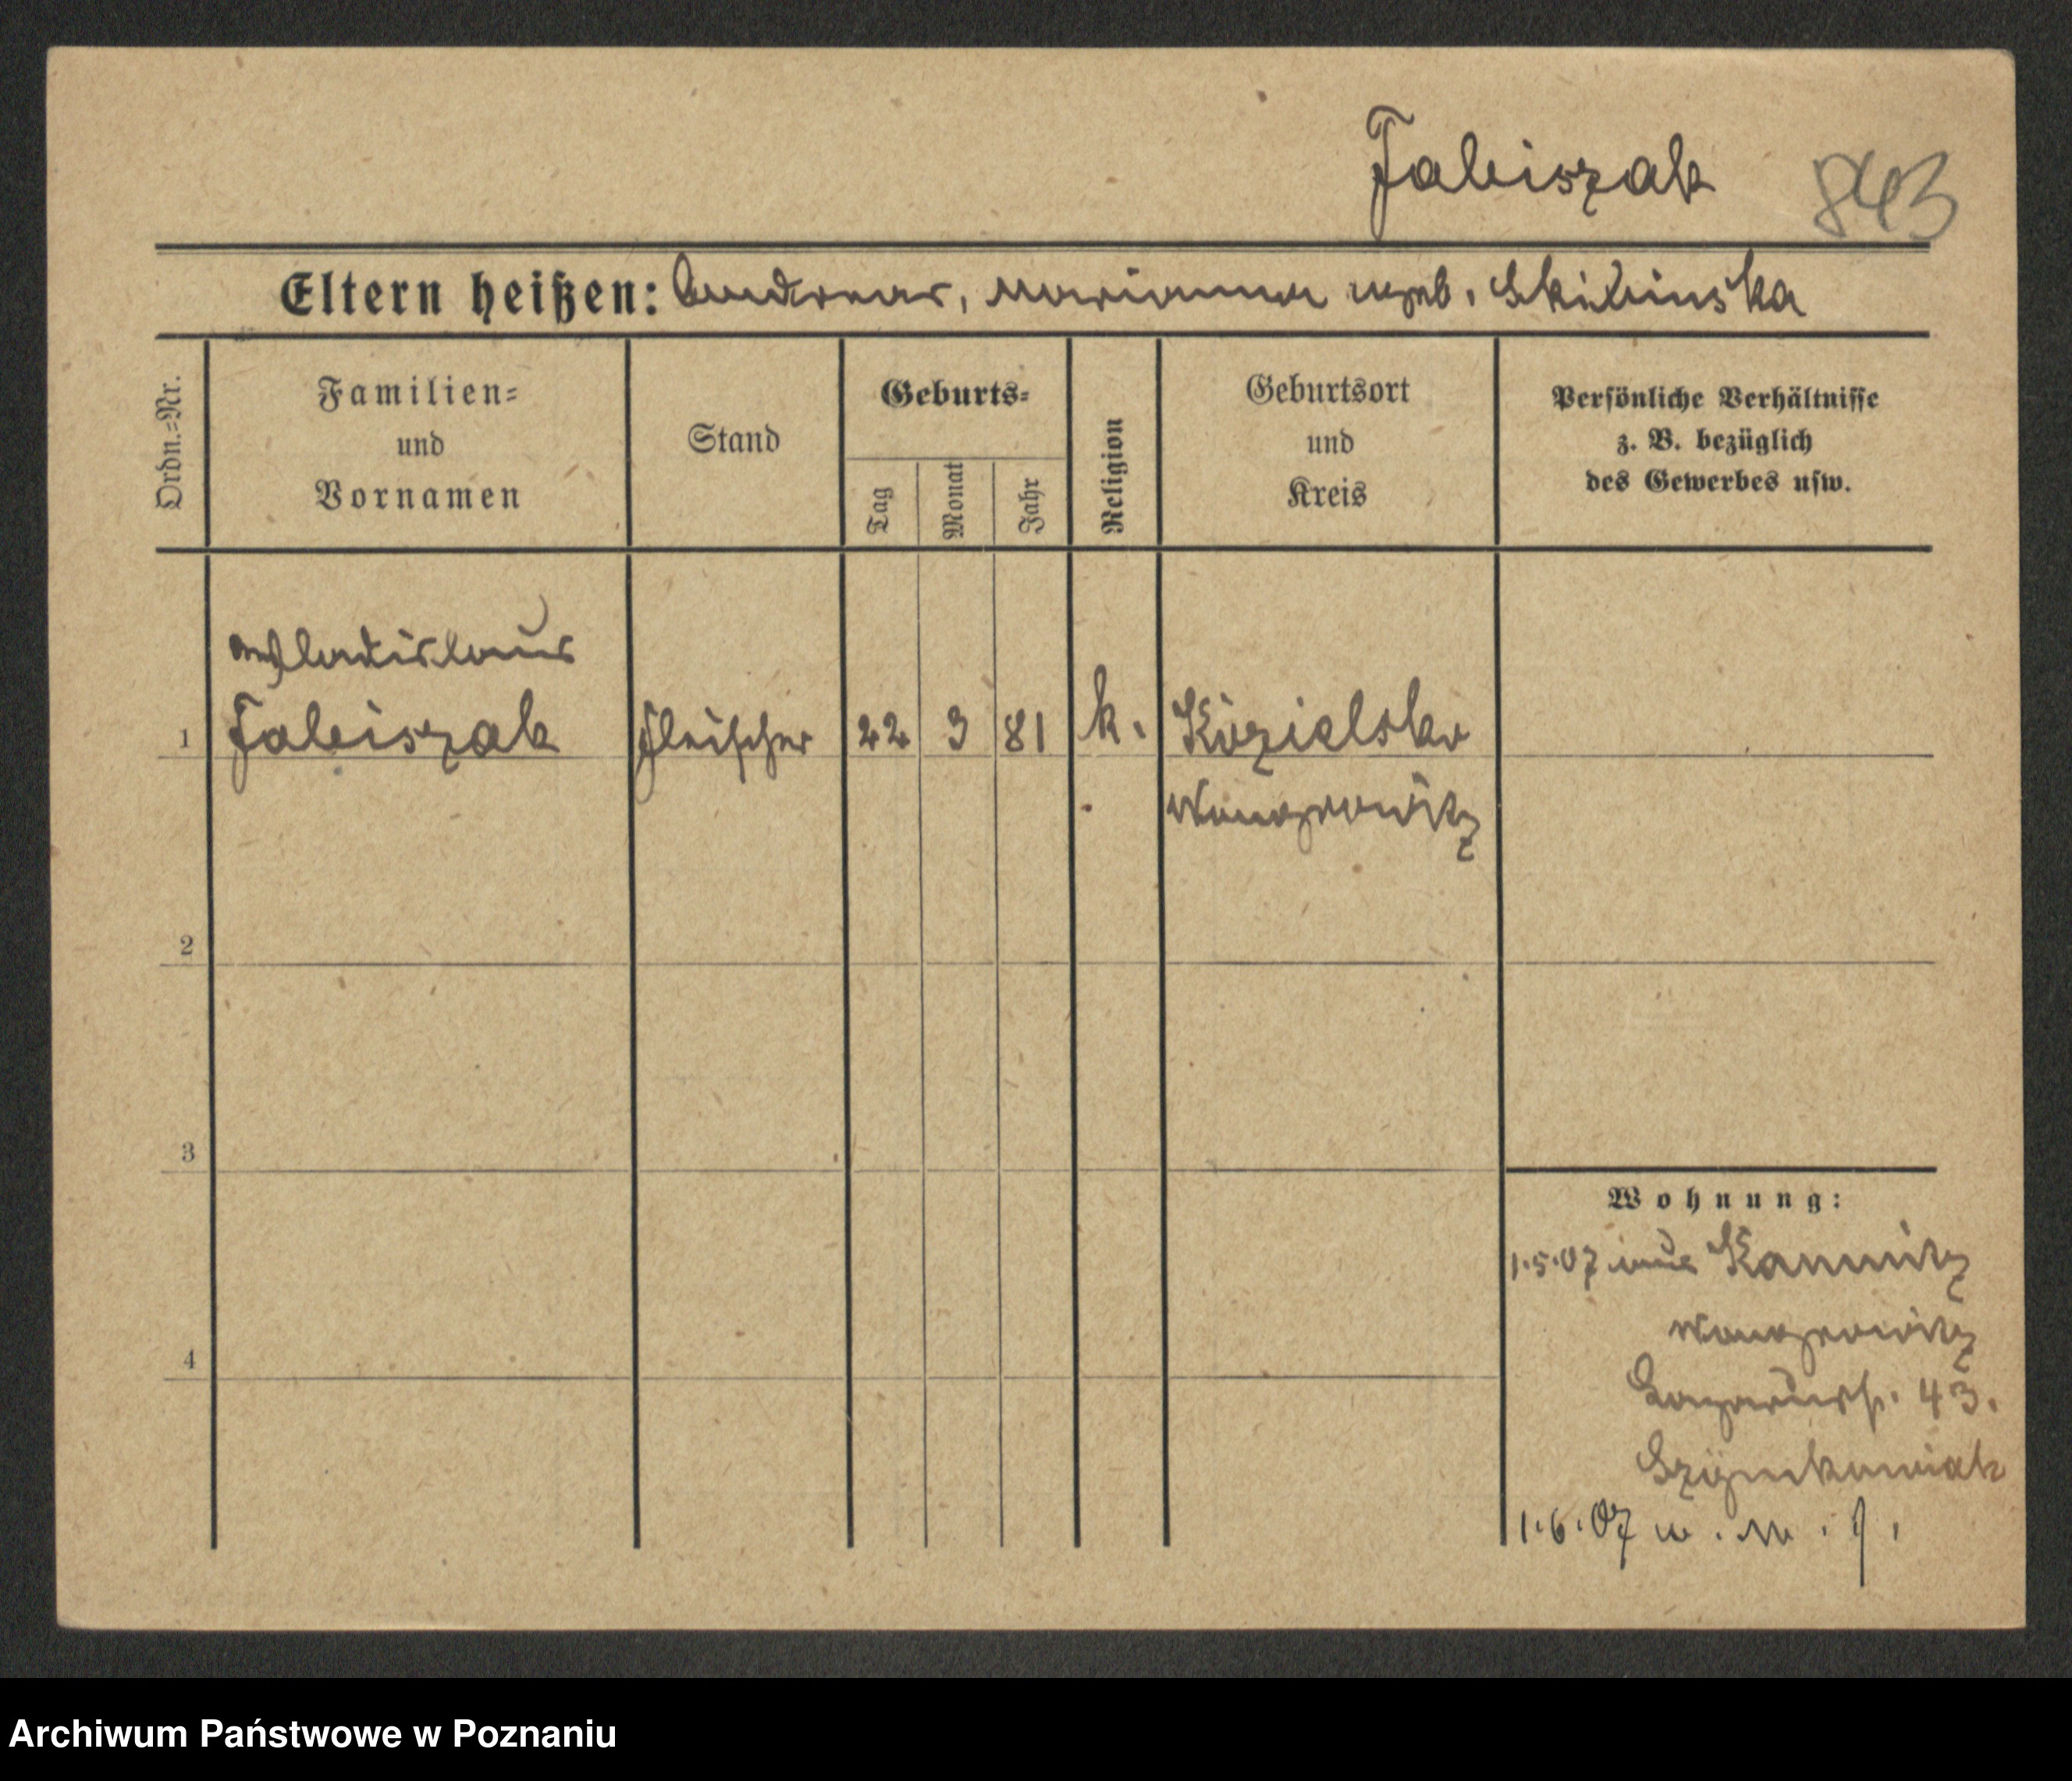 Fabiszak 843
Eltern heißen: Andreas, Marianna geb. Skibinska
Ordn.=Nr.
Familien=
und
Vornamen
Stand
Geburts=
Tag
Monat
Jahr
Religion
Geburtsort
und
Kreis
Persönliche Verhältnisse
z. B. bezüglich
des Gewerbes usw.
Wladislaus
1 Fabiszak Fleischer 22 3 81 k. Kozielsko
Wongrowitz
2
3
4
Wohnung:
1.5.07 aus
Wongrowitz
43.
Szymkowiak
1.6.07
Archiwum Państwowe w Poznaniu